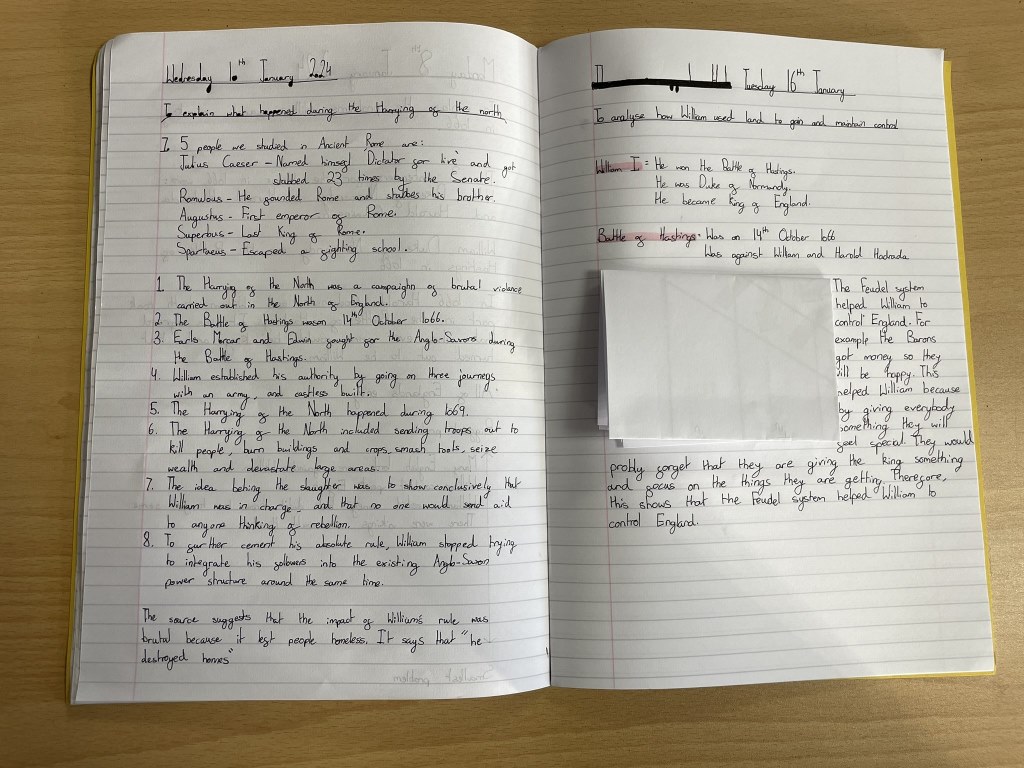 Wednesday 10th January 2024
To explain what happened during the Harrying of the north
5 people we studied in Ancient Rome are:
Julius Caeser - Named himself 'Dictator for live' and got
stabbed 23 times by the Senate.
Romulous - He founded Rome and stabbes his brother.
Augustus - First emperor of Rome.
Superbus - Last King of Rome.
Spartacus - Escaped a fighting school.
1. The Harryig of the North was a campaighn of brutal violence
carried out in the North of England.
2. The Battle of Hastings wason 14th October 1066.
3. Earls Morcar and Edwin fought for the Anglo-Saxons during
the Battle of Hastings.
4. William established his authority by going on three journeys
with an army, and castless built.
5. The Harrying of the North happened during 1069.
6. The Harrying of the North included sending troops out to
kill people, burn buildings and crops, smach tools, seize
wealth and devastate large areas.
7. The idea behing the slaughter was to show conclusively that
William was in charge, and that no one would send aid
to anyone thinking of rebellion.
8. To further cement his absolute rule, William stopped trying
to integrate his followers into the existing Anglo-Saxon
power structure around the same time.
The source suggests that the impact of William's rule was
brutal because it left people homeless. It says that "he
destroyed homes"
Tuesday 16th January
To analyse how William used land to gain and maintain control
William I: He won the Battle of Hastings.
He was Duke of Normandy.
He became King of England.
Battle of Hastings: Was on 14th October 1066
Was against William and Harold Hadrada.
The Feudel system
helped William to
control England. For
example the Barons
got money so they
will be happy. This
helped William because
by giving everybody
something they will
feel special. They would
probly forget that they are giving the king something
and focus on the things they are getting. Therefore,
this shows that the Feudel system helped William to
control England.